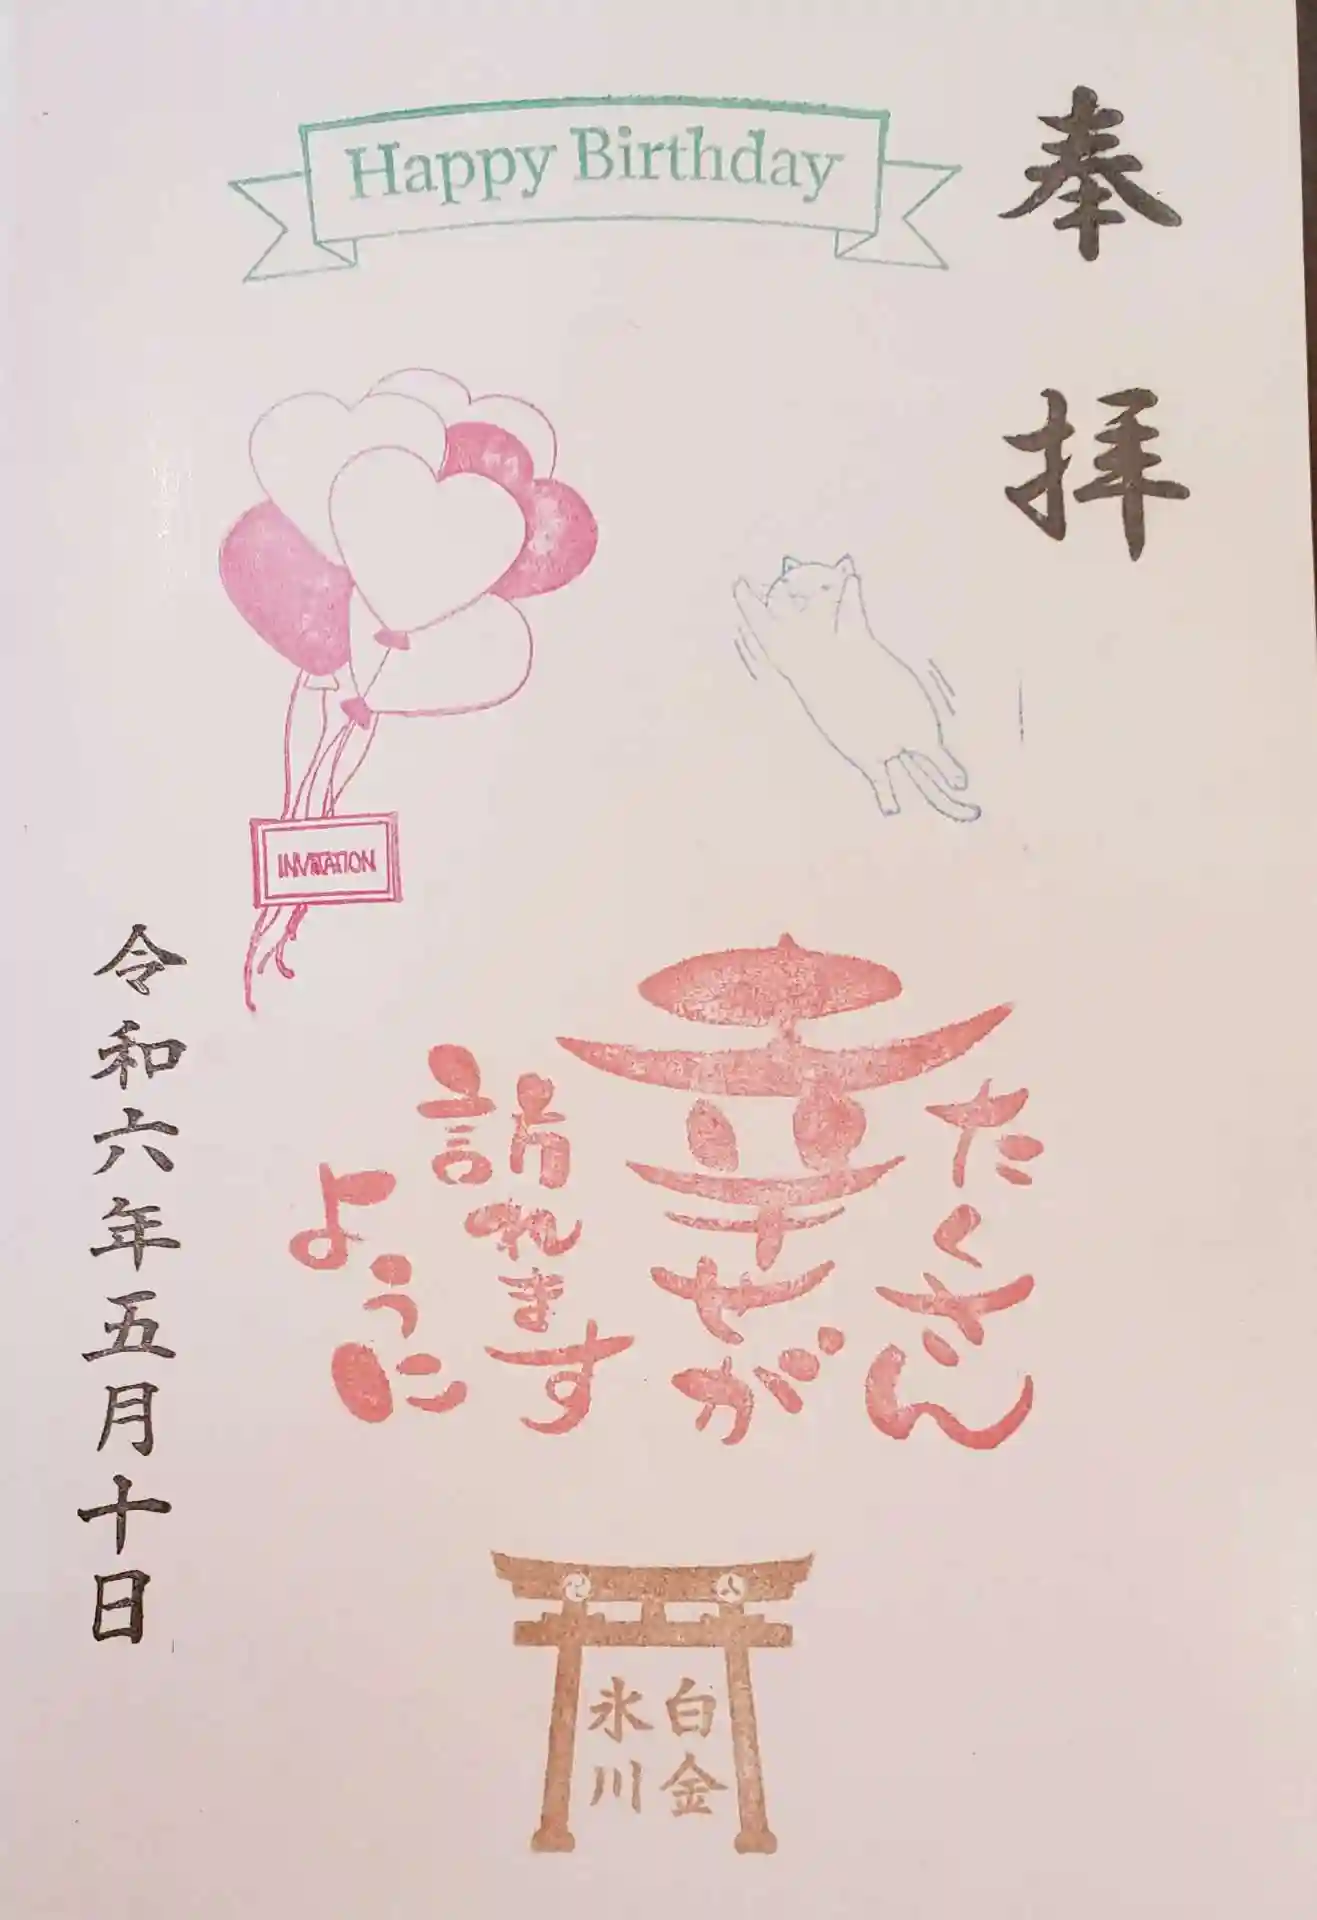 奉拝
Happy Birthday
INVITATION
たくさん
幸せが
訪れます
ように
白金
氷川
令和六年五月十日